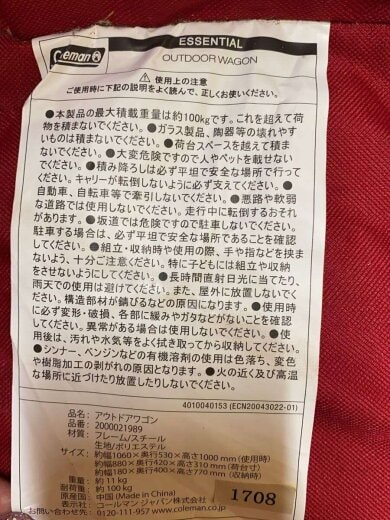 Coleman
ESSENTIAL
OUTDOOR WAGON
使用上の注意
ご使用前に下記の説明をよく読んで、正しくお使いください。
●本製品の最大積載重量は約100kgです。これを超えて荷
物を積まないでください。●ガラス製品、陶器等の壊れやす
いものは積まないでください。●荷台スペースを越えて積ま
ないでください。●大変危険ですので人やペットを載せない
でください。●積み降ろしは必ず平坦で安全な場所で行って
ください。キャリーが転倒しないように必ず支えてください。●
自動車、自転車等で牽引しないでください。●悪路や軟弱
な道路では使用しないでください。走行中に転倒するおそれ
があります。●坂道では危険ですので駐車しないでください。
駐車する場合は、必ず平坦で安全な場所であることを確認
してください。●組立・収納時や使用の際、手や指などを挟ま
ないよう、十分ご注意ください。特に子どもには組立や収納
をさせないようにしてください。●長時間直射日光に当てたり、
雨天での使用は避けてください。また、屋外に放置しないでく
ださい。構造部材が錆びるなどの原因になります。●使用時
に必ず変形・破損、各部に緩みやガタなどがないことを確認
してください。異常がある場合は使用しないでください。●使
用後は、汚れや水気等をよく拭き取ってから収納してください。
●シンナー、ベンジンなどの有機溶剤の使用は色落ち、変色
や樹脂加工の剥がれの原因となります。●火の近く及び高温
な場所に近づけたり放置したりしないでください。
4010040153 (ECN20043022-01)
品名: アウトドアワゴン
品番: 2000021989
材質: フレーム/スチール
生地/ポリエステル
サイズ: 約幅1060×奥行530×高さ1000mm(使用時)
約幅880×奥行420×高さ310mm(荷台寸)
約幅180×奥行400×高さ770mm(収納時)
重量: 約11kg
耐荷重: 約100kg
原産国: 中国 (Made in China)
表示者: コールマン ジャパン株式会社
お問い合わせ先: 0120-111-957 www.coleman.co.jp
1708